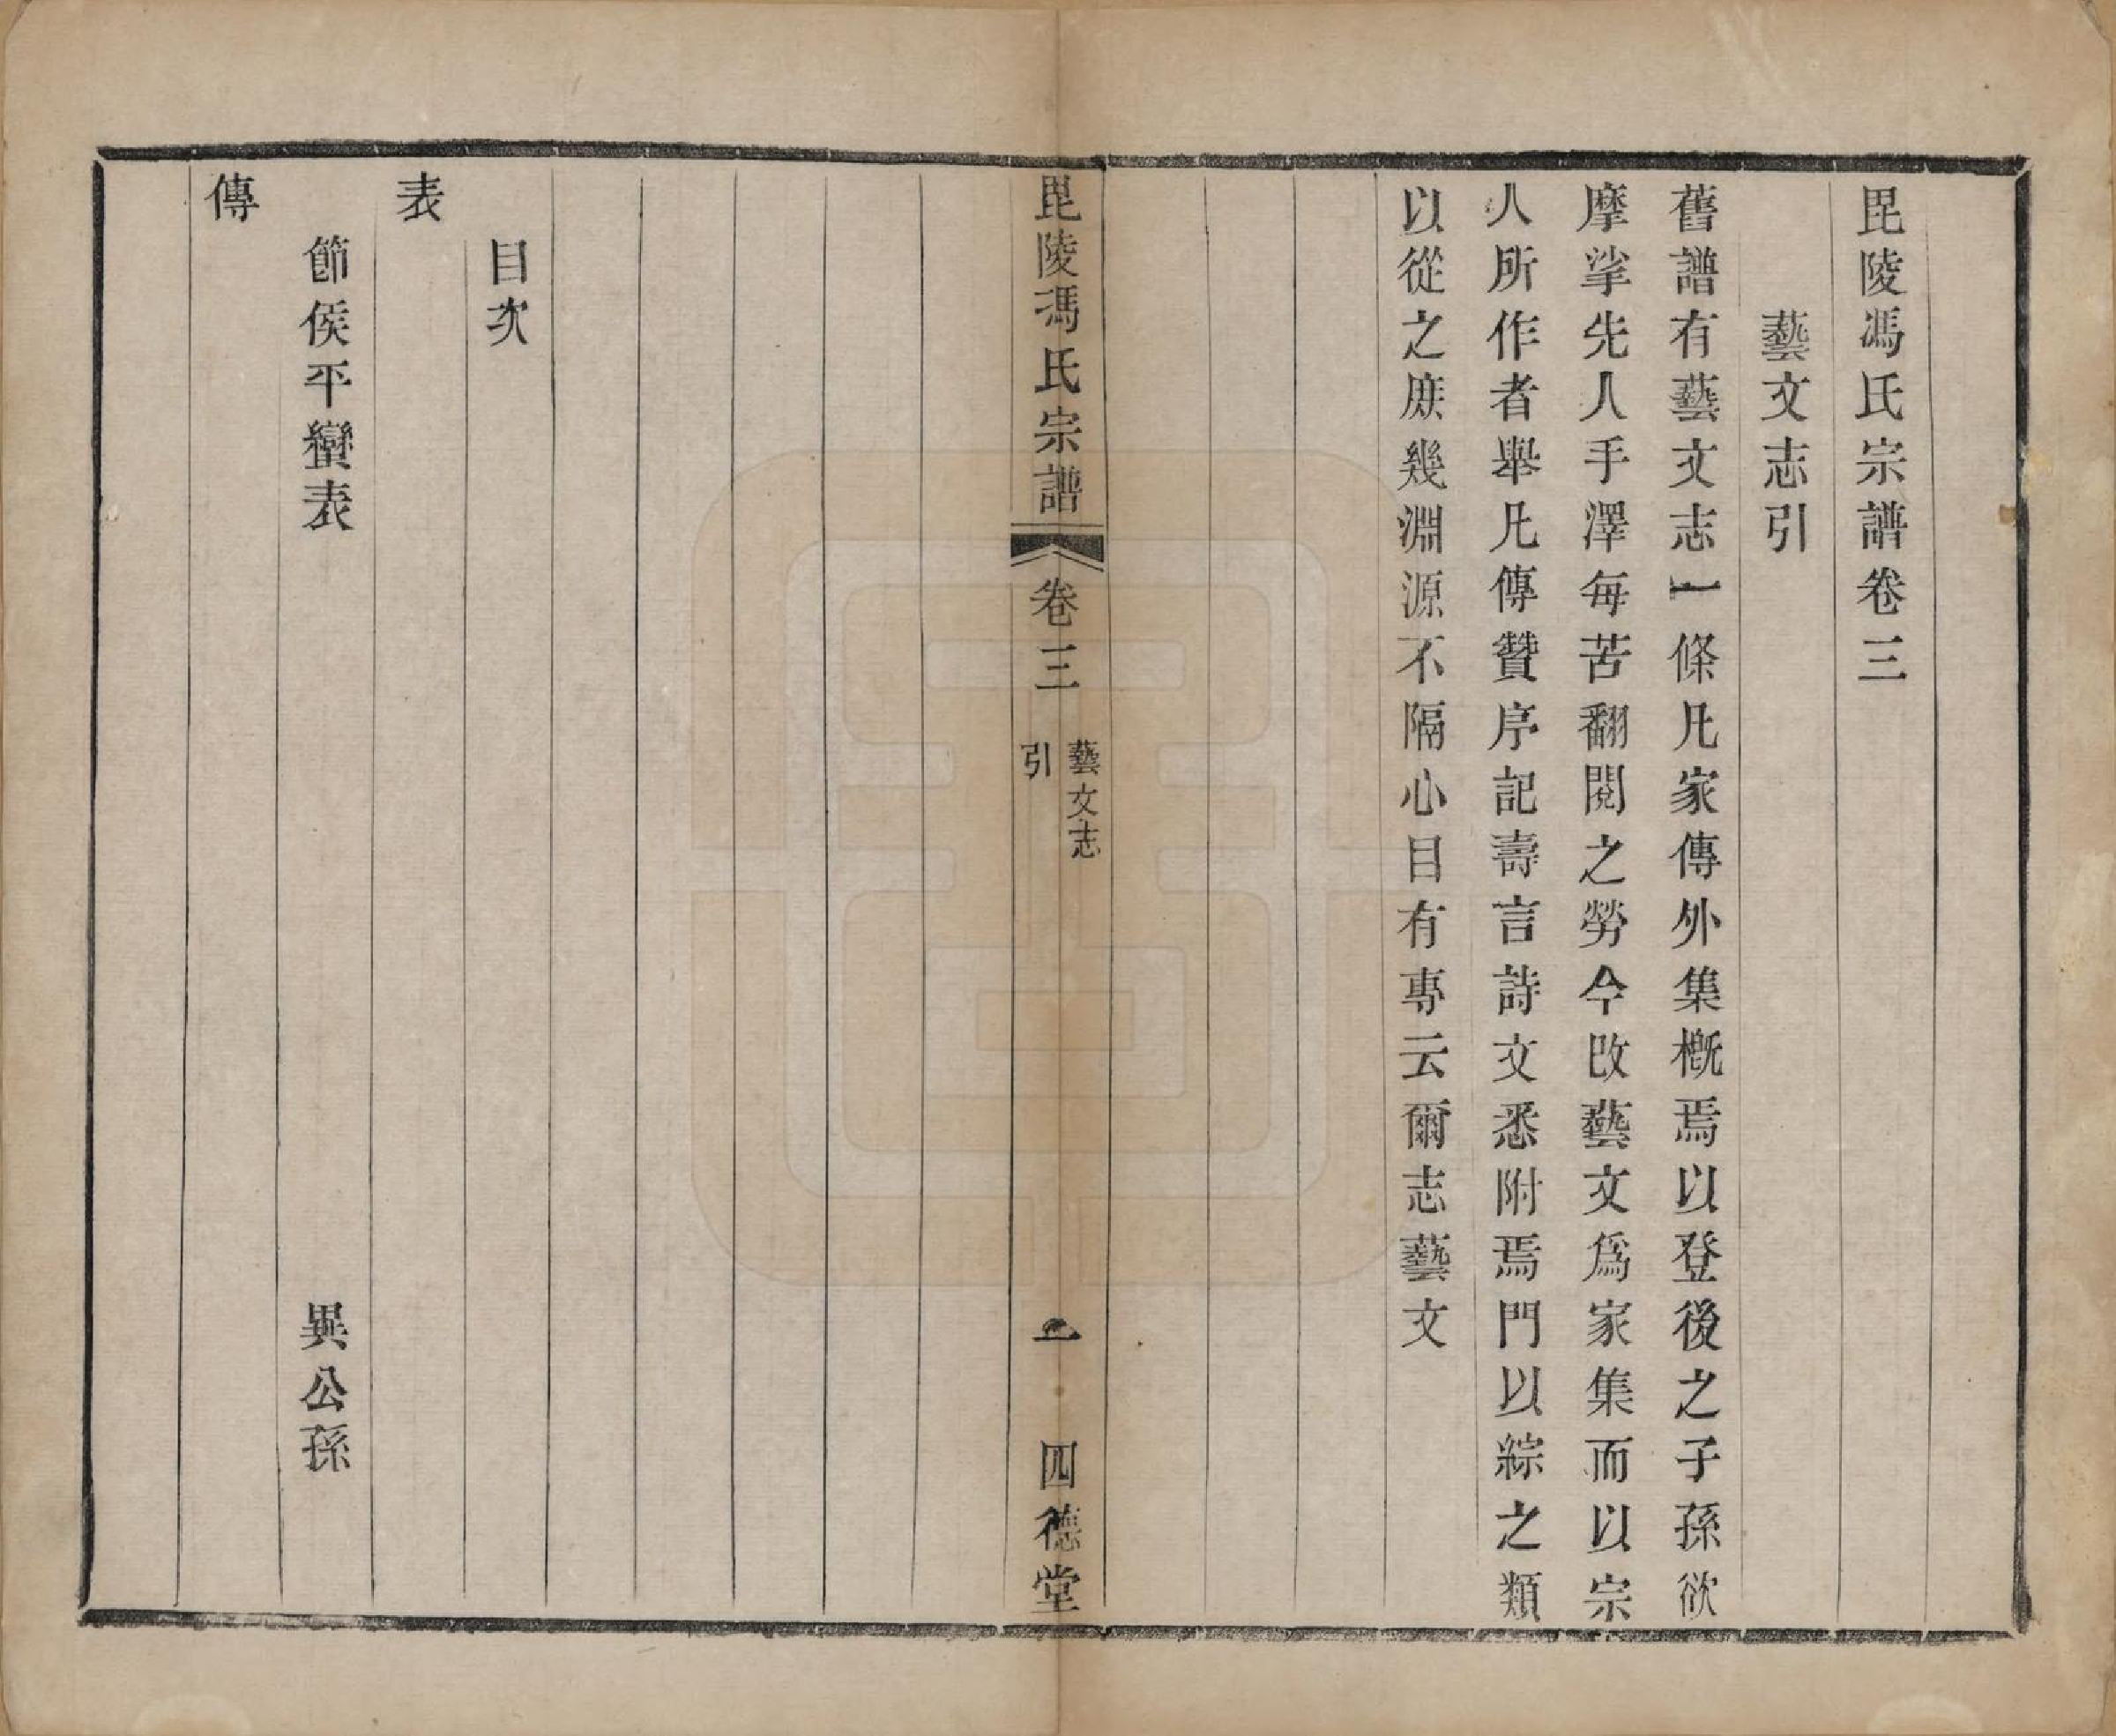 毘陵馮氏宗譜卷三
藝文志引
舊譜有藝文志一條凡家傳外集槪焉以登後之子孫欲
摩挲先人手澤每苦翻閱之勞今改藝文爲家集而以宗
人所作者舉凡傳贊序記壽言詩文悉附焉門以綜之類
以從之庶幾淵源不隔心目有專云爾志藝文
毘陵馮氏宗譜 卷三 藝文志引 一 四德堂
目次
表
節侯平蠻表 異公孫
傳